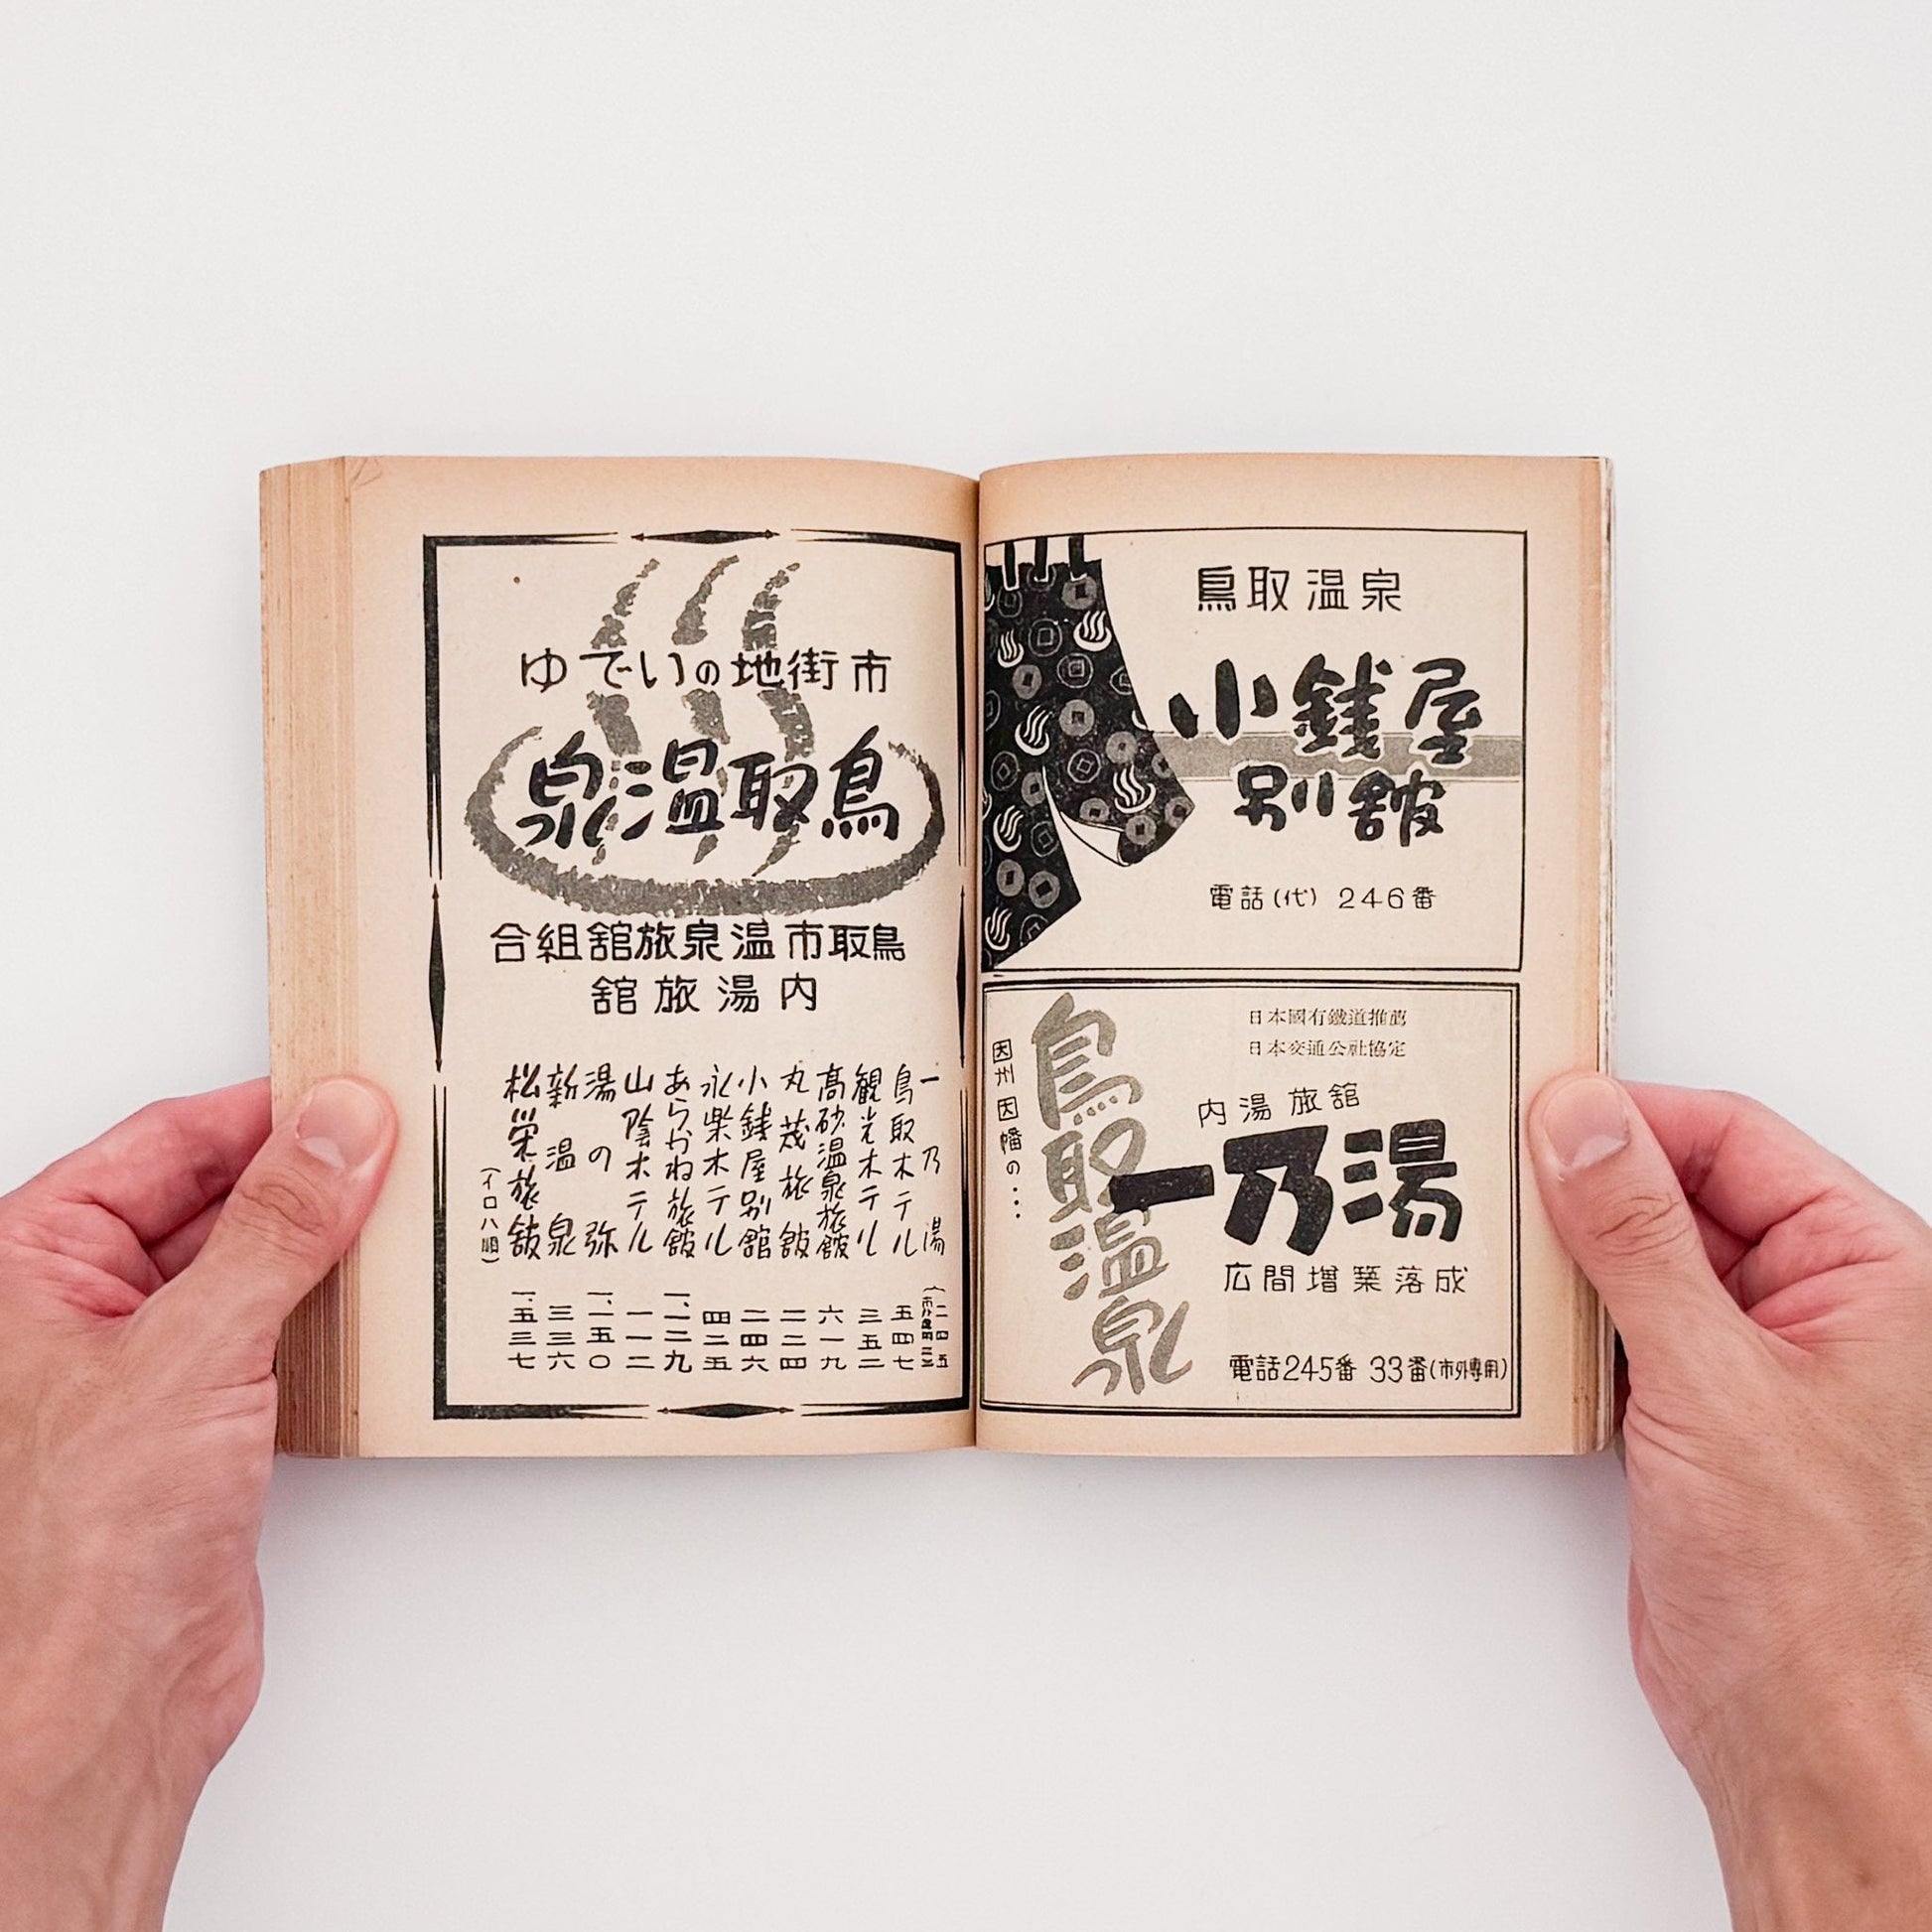 鳥取温泉
小銭屋
別舘
電話(代) 246番
日本國有鐵道推薦
日本交通公社協定
内湯旅舘
一乃湯
広間増築落成
電話245番 33番(市外専用)
鳥取温泉
因州因幡の・・・
市街地のいでゆ
鳥取温泉
鳥取市温泉旅舘組合
内湯旅舘
一乃湯 二四五
鳥取ホテル 五四七
観光ホテル 三五二
高砂温泉旅舘 六一九
丸茂旅舘 二二四
小銭屋別舘 二四六
永楽ホテル 四二五
あらかね旅舘
山陰ホテル 一一二
湯の弥 一、一五〇
新温泉 三三六
松栄旅舘 一、五三七
(イロハ順)